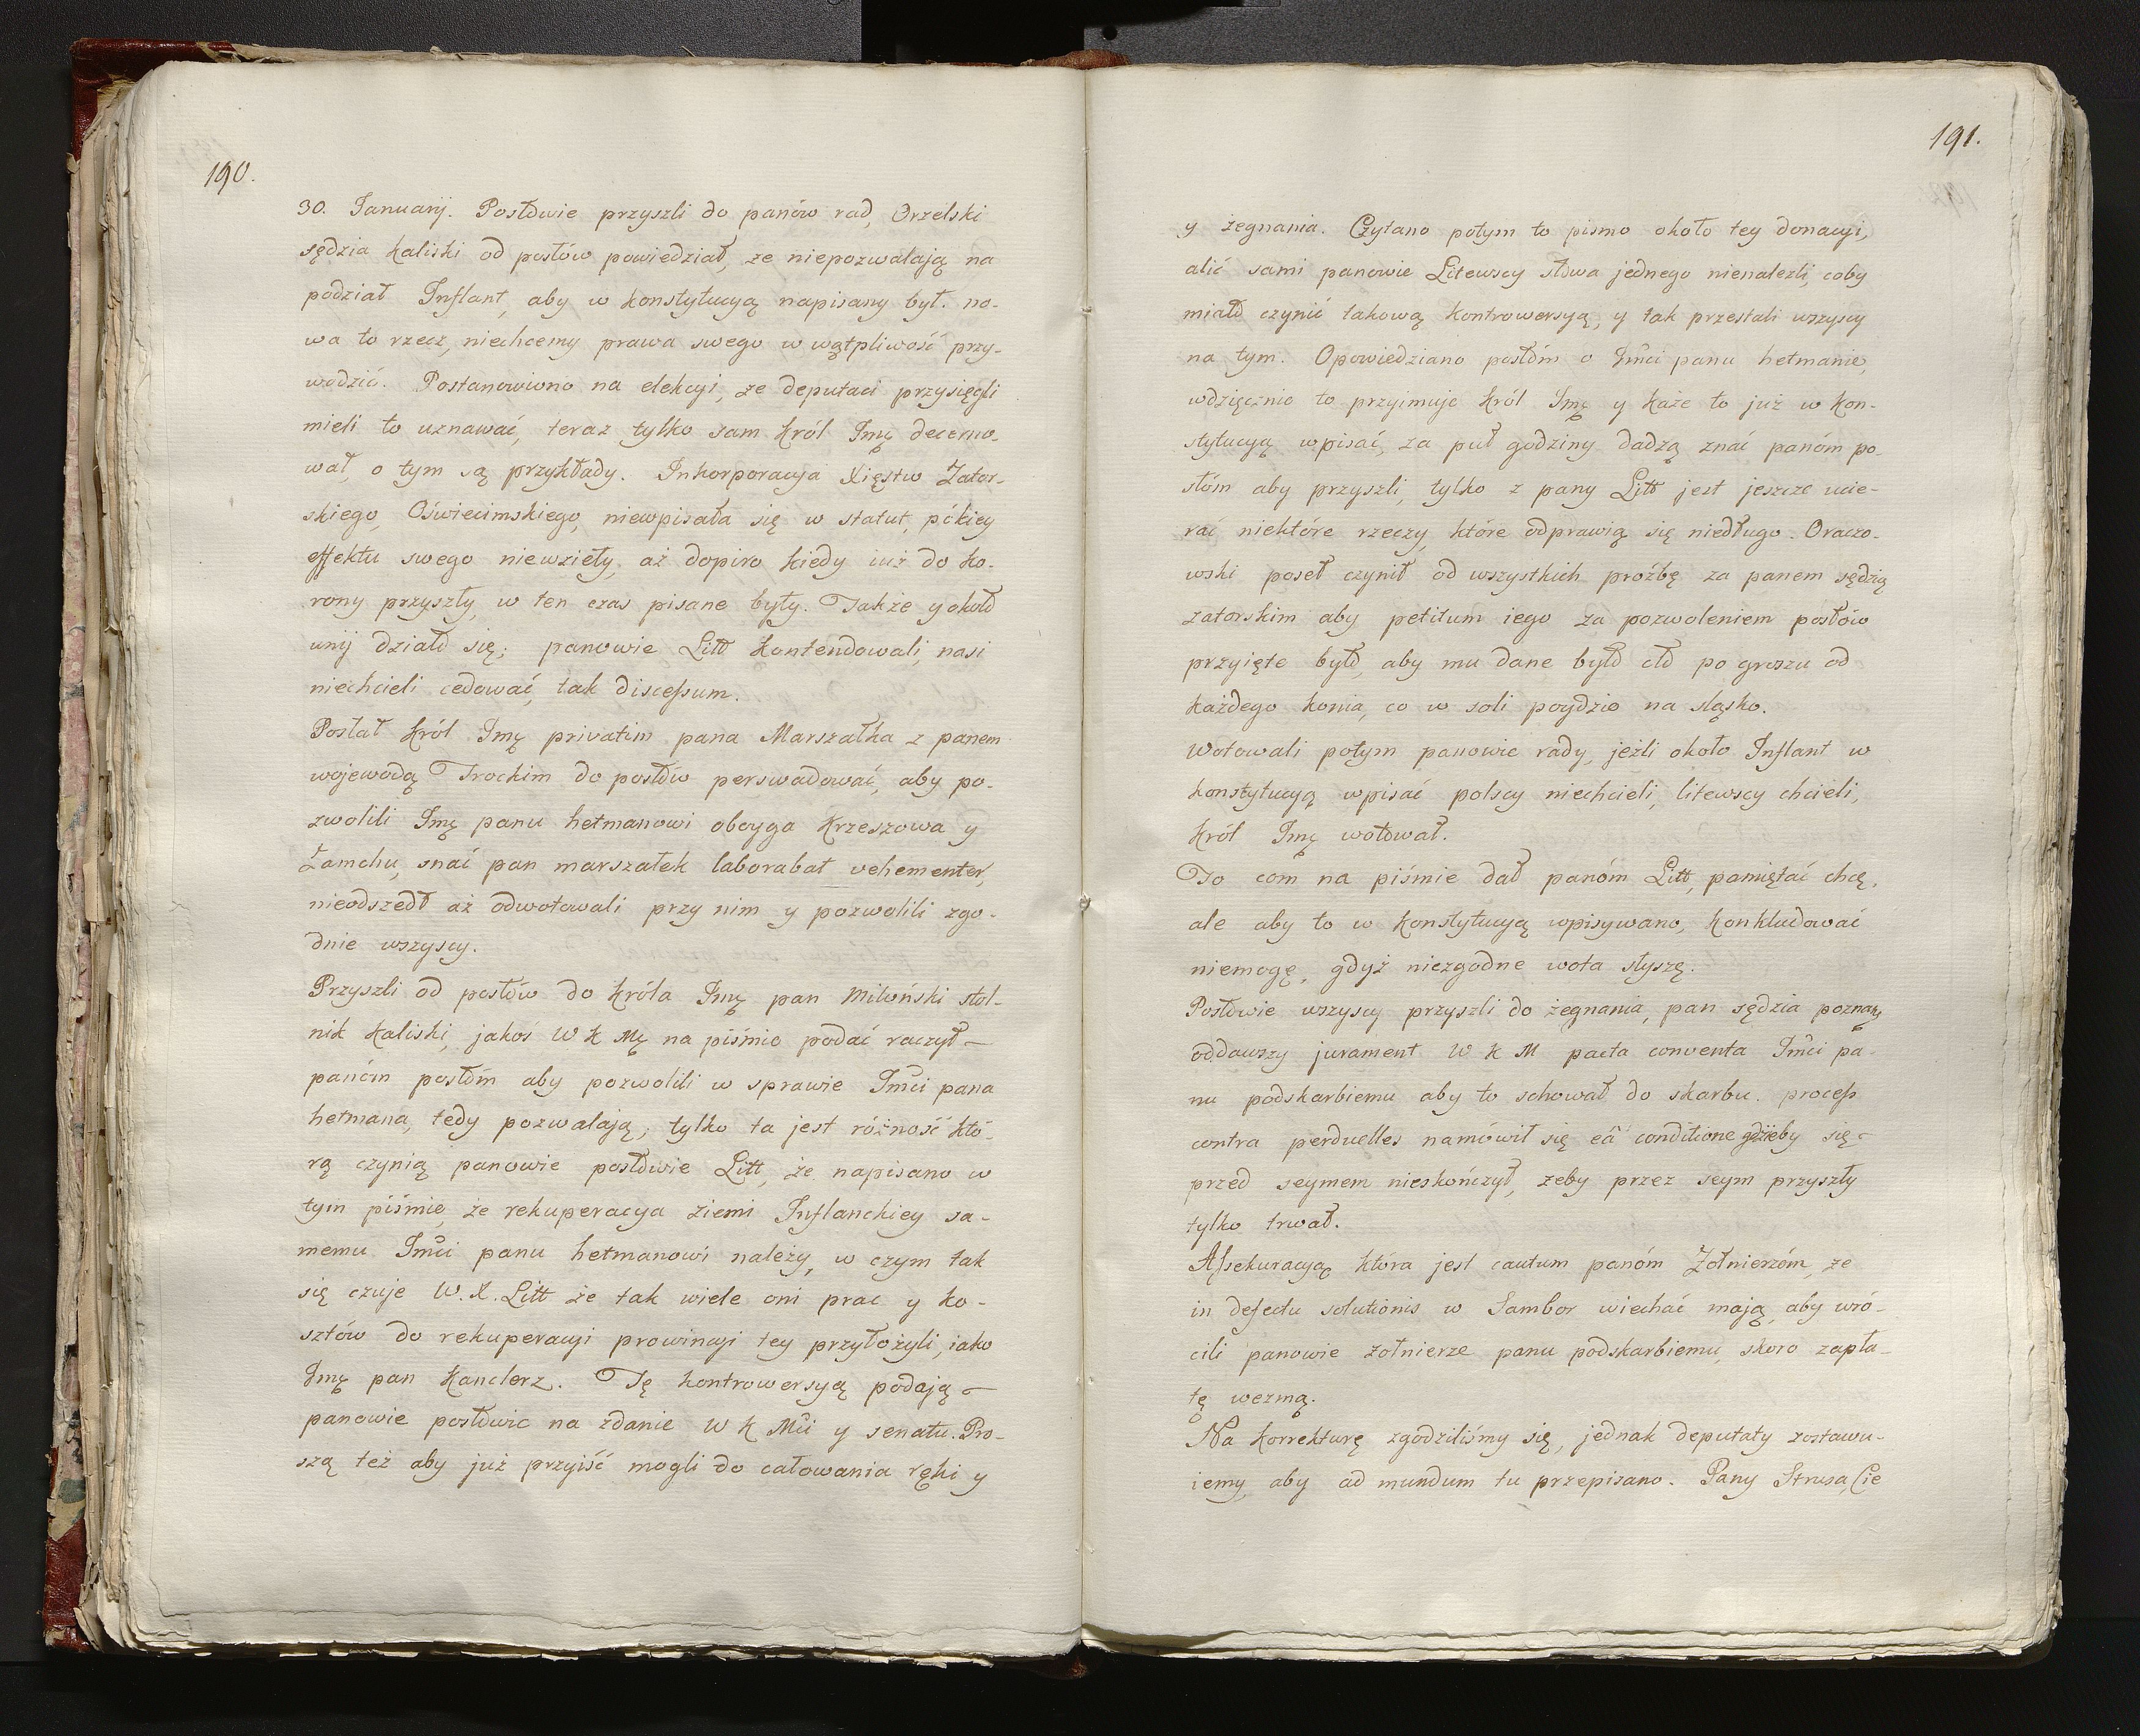 190.
30. Januarij. Posłowie przyszli do panów rad, Orzelski
sędzia kaliski od posłów powiedział, że niepozwalają na
podział Inflant, aby w konstytucyą napisany był. no-
wa to rzecz, niechcemy prawa swego w wątpliwość przy-
wodzić. Postanowiono na elekcyi, że deputaci przysięgli
mieli to uznawać, teraz tylko sam Król Jmę decerno-
wał, o tym są przykłady. Inkorporacya Xięstw Zator-
skiego, Oświecimskiego, niewpisała się w statut, pókiey
effektu swego niewzieły, aż dopiro kiedy iuż do ko-
rony przyszły, w ten czas pisane były. Także y około
unij działo się; panowie Litt kontendowali, nasi
niechcieli cedować, tak discessum.
Posłał Król Jmę privatim pana Marszałka z panem
wojewodą Trockim do posłów perswadować, aby po-
zwolili Jmę panu hetmanowi oboyga Krzeszowa y
Zamchu, snać pan marszałek laborabat vehementer,
nieodszedł aż odwotowali przy nim y pozwolili zgo-
dnie wszyscy.
Przyszli od posłów do Króla Jmę pan Miloński stol-
nik kaliski, jakoś W K Mę na piśmie podać raczył
panóm posłóm aby pozwolili w sprawie Jmći pana
hetmana, tedy pozwalają; tylko ta jest różność któ-
rą czynią panowie posłowie Litt, że napisano w
tym piśmie, że rekuperacya ziemi Inflanckiey sa-
memu Jmći panu hetmanowi należy, w czym tak
się czuje W. X. Litt że tak wiele oni prac y ko-
sztów do rekuperacyi prowincyi tey przyłożyli, iako
Jmę pan Kanclerz. Tę kontrowersyą podają
panowie posłowie na zdanie W K Mći y senatu. Pro-
szą też aby już przyiść mogli do całowania ręki y
191.
y żegnania. Czytano potym to pismo około tey donacyi,
alić sami panowie Litewscy słowa jednego nienalezli, coby
miało czynić takową kontrowersyą, y tak przestali wszyscy
na tym. Opowiedziano posłóm o Jmći panu hetmanie,
wdzięcznie to przyimuje Król Jmę y każe to już w kon-
stytucyą wpisać, za puł godziny dadzą znać panóm po-
słóm aby przyszli, tylko z pany Litt jest jeszcze ucie-
rać niektóre rzeczy, które odprawią się niedługo. Oraczo-
wski poseł czynił od wszystkich proźbę za panem sędzią
zatorskim aby petitum iego za pozwoleniem posłów
przyięte było, aby mu dane było cło po groszu od
każdego konia, co w soli poydzie na sląsko.
Wotowali potym panowie rady, jeżli około Inflant w
konstytucyą wpisać polscy niechcieli, litewscy chcieli,
Król Jmę wotował.
To com na piśmie dał panóm Litt, pamiętać chcę,
ale aby to w konstytucyą wpisywano, konkludować
niemogę, gdyż niezgodne wota słyszę.
Posłowie wszyscy przyszli do żegnania, pan sędzia poznańs
oddawszy jurament W K M pacta conventa Jmći pa-
nu podskarbiemu aby to schował do skarbu. process
contra perduelles namówił się eâ conditione gdzieby się
przed seymem nieskończył, żeby przez seym przyszły
tylko trwał.
Assekuracyą która jest cautum panóm Żołnierzóm, że
in defectu solutionis w Sambor wiechać mają, aby wró-
cili panowie żołnierze panu podskarbiemu, skoro zapła-
tę wezmą.
Na korrekturę zgodziliśmy się, jednak deputaty zostawu-
iemy, aby ad mundum tu przepisano. Pany Strusa, Cie